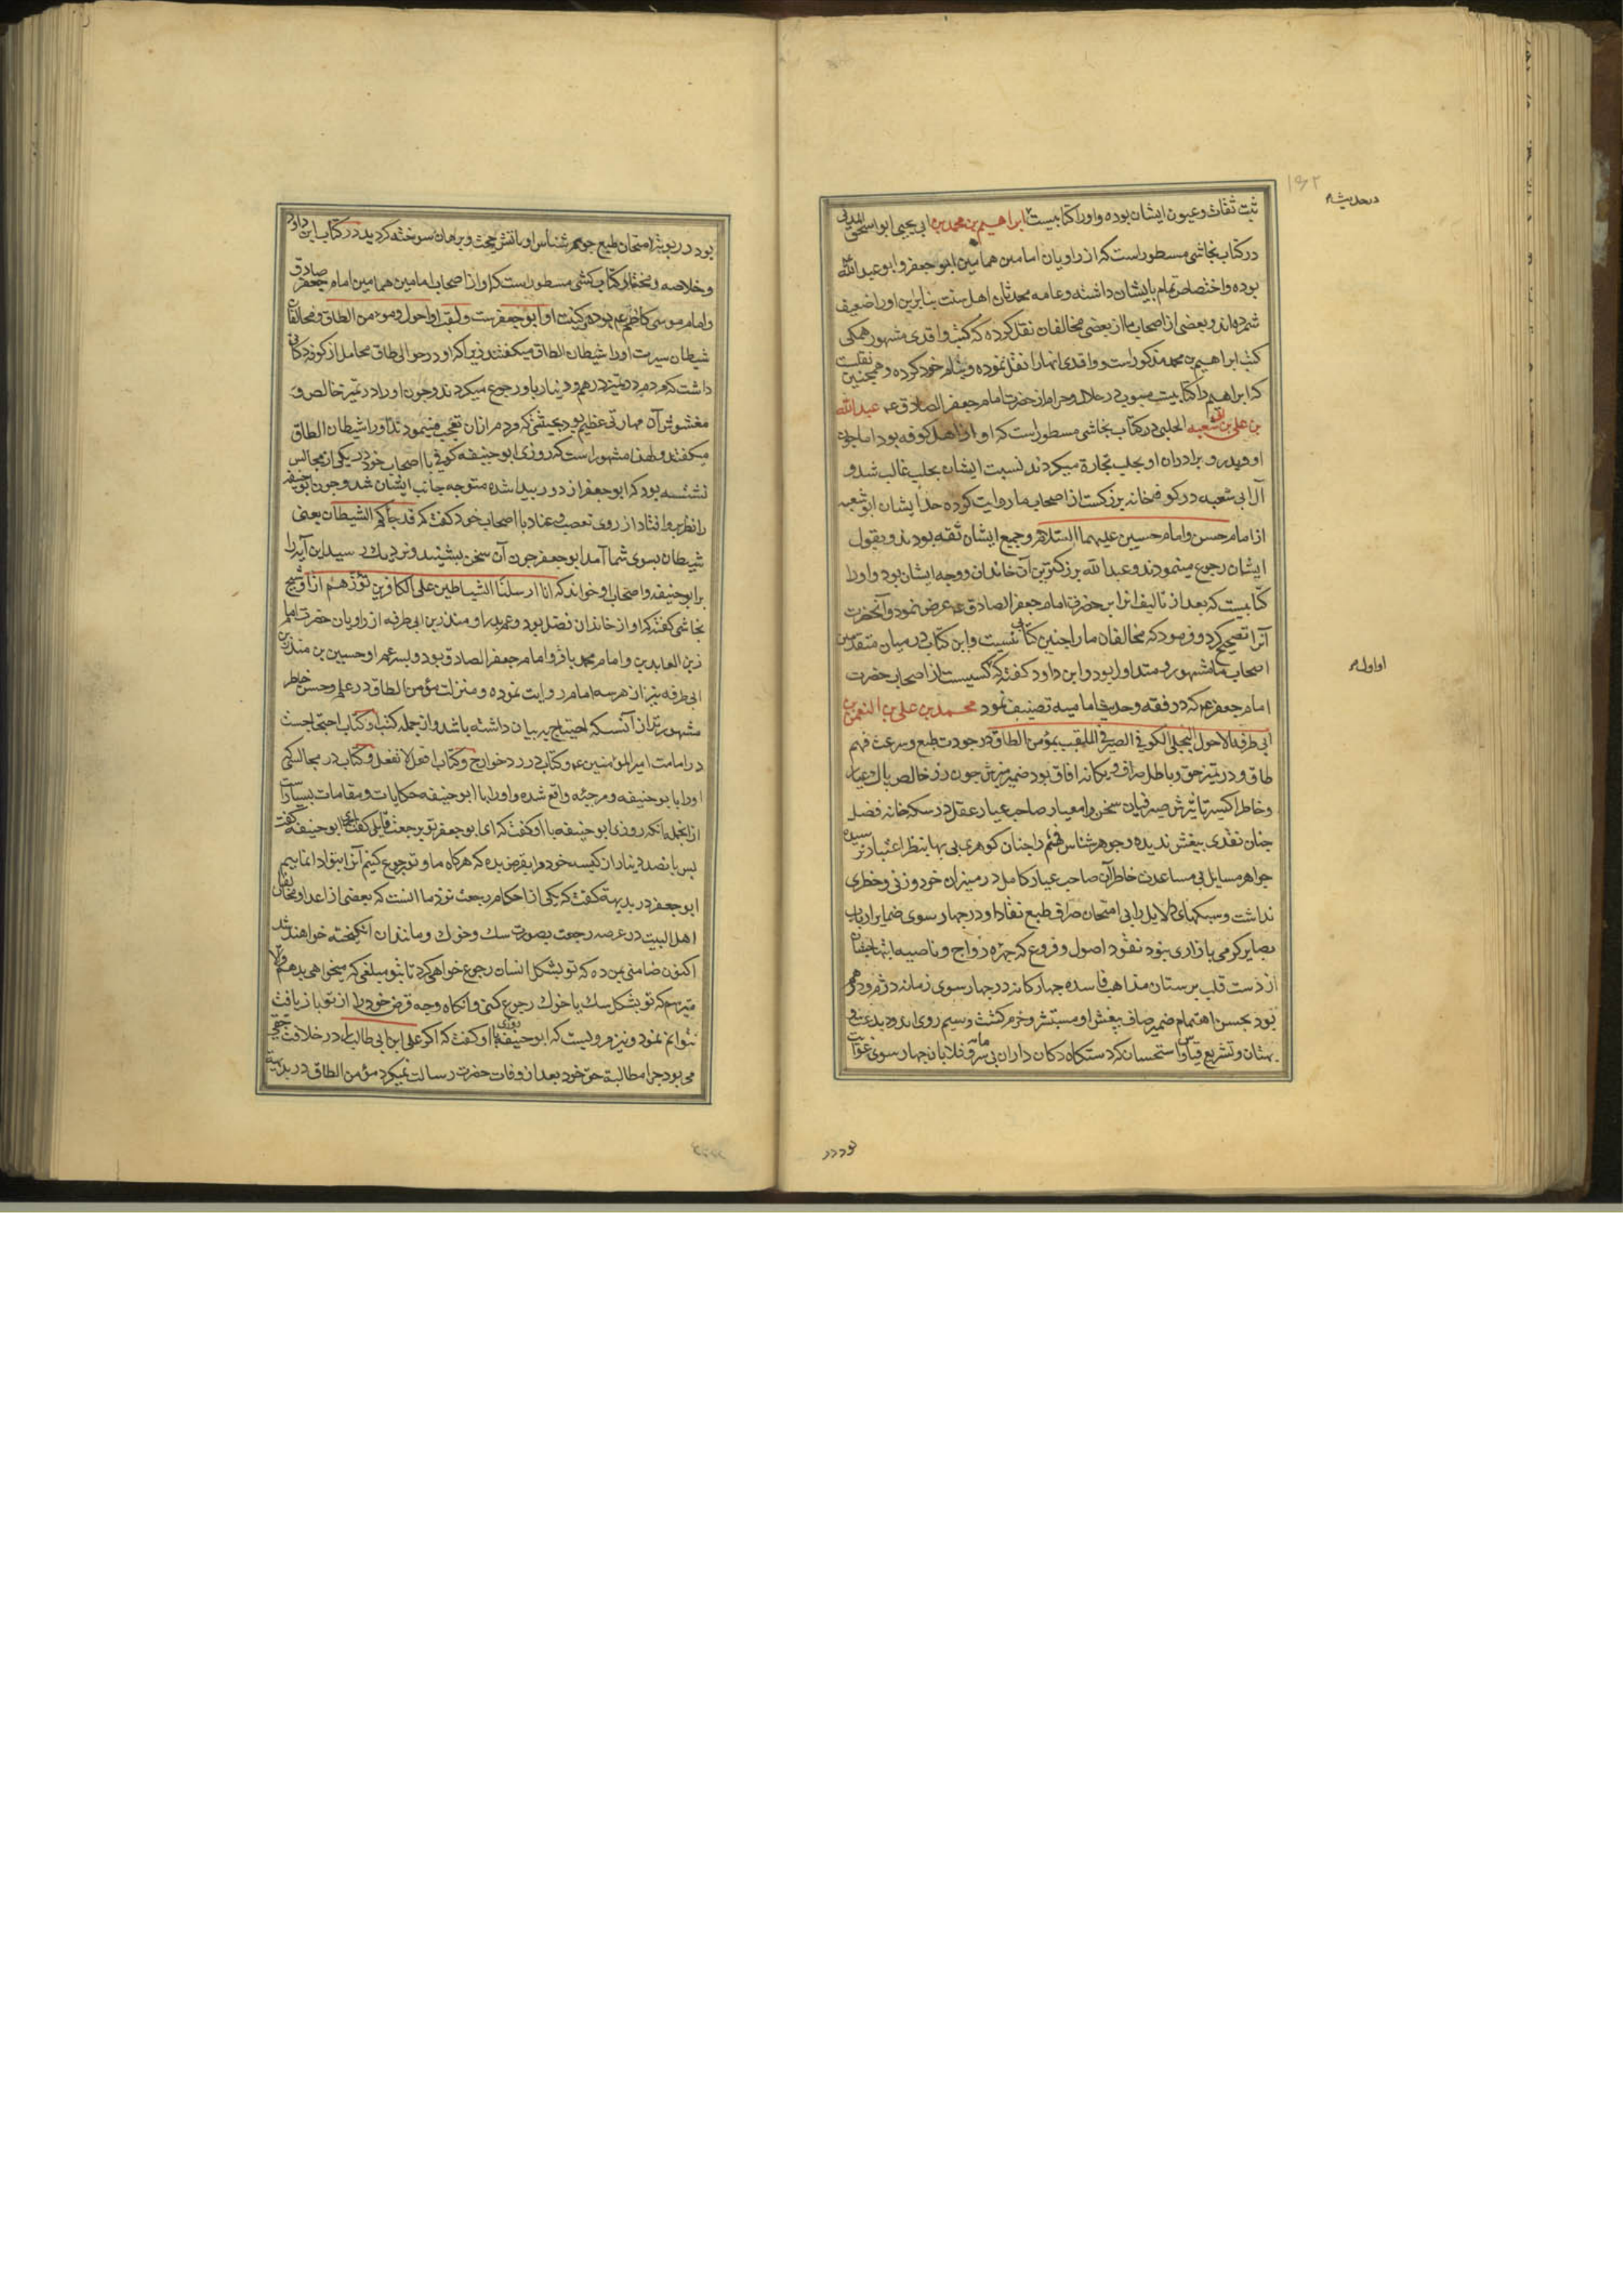 ثبت ثقات و عیون ایشان بوده و او را کتابیست ابراهیم بن محمد بن ابی یحیی ابو اسحق المدنی
در کتاب نجاشی مسطور است که از راویان امامین همامین ابو جعفر و ابو عبد الله
بوده و اختصاص تمام بایشان داشته و عامه محدثان اهل سنت بنابراین او را ضعیف
شمرده‌اند و بعضی از اصحاب ما از بعضی مخالفان نقل کرده که کتب واقدی مشهور همکی
کتب ابراهیم بن محمد مذکور است و واقدی انها را نقل نموده و بنام خود کرده و همچنین نقلست
که ابراهیم را کتابیست مبوب در حلال و حرام از حضرت امام جعفر الصادق عم عبد الله
بن علی بن ابی شعبه الحلبی در کتاب نجاشی مسطور است که او از اهل کوفه بود اما چون
او و پدر و برادران او بحلب تجارة میکردند نسبت ایشان بحلب غالب شد و
آل ابی شعبه در کوفه خانه بزرکست از اصحاب ما روایت کرده جد ایشان ابو شعبه
از امام حسن و امام حسین علیهما السلام و جمیع ایشان ثقه بودند و بقول
ایشان رجوع مینمودند و عبد الله بزرکترین آن خاندان و وجه ایشان بود و او را
کتابیست که بعد از تالیف انرا بر حضرت امام جعفر الصادق عم عرض نمود و آنحضرت
آنرا تصحیح کرد و فرمود که مخالفان ما را چنین کتابی نیست و این کتاب در میان متقدمین
اصحاب ما مشهور و متداول بود و ابن داود کفته که کسیست از اصحاب حضرت
امام جعفر عم که در فقه و حدیث امامیه تصنیف نمود محمد بن علی بن النعمن بن
ابی طرفه الاحول البجلی الکوفی الصیرفی الملقب بمؤمن الطاق در جودت طبع و سرعت فهم
طاق و در تمیز حق و باطل صراف و یکانه افاق بود ضمیر منیرش چون زر خالص پاک عیار
و خاطر اکسیر تاثیرش صیرفیان سخن را معیار صاحب عیار عقل در سکه خانه فضل
چنان نقدی بیغش ندیده و جوهر شناس فهم چنان کوهری بی بها بنظر اعتبارش نرسیده
جواهر مسایل بی مساعدت خاطر آن صاحب عیار کامل در میزان خرد وزنی و خطری
نداشت و سبیکهای دلایل را بی امتحان صراف طبع نقاد او در چهار سوی ضمایر ارباب
بصایر کرمی بازاری نبود نقود اصول و فروع که چهره رواج و ناصیه
از دست قلب پرستان مذاهب فاسده چهار کانه در چهار سوی زمانه
بود بحسن اهتمام ضمیر صاف بیغش او مستبشر و خرم کشت و سیم روی اندود بدعت
بهتان و تشریع قیاس و استحسان که دستکاه دکان داران بی سرمایه و قلابان چهار سوی غوایت
در حدیث
او اول
بود در بوته امتحان طبع جوهر شناس او باتش حجت و برهان سوخته کردید در کتاب ابن داود
و خلاصه و مختار کتاب کشی مسطور است که او از اصحاب امامین همامین امام جعفر صادق
و امام موسی کاظم عم بوده و کنیت او ابو جعفر است و لقب او احول و مومن الطاق و مخالفان
شیطان سیرت او را شیطان الطاق میکفتند زیرا که او در حوالی طاق محامل از کوفه دکانی
داشت که مردم در تمیز درهم و دینار باو رجوع میکردند و چون او را در تمیز خالص و
مغشوش آن مهارتی عظیم بود بحیثتی که مردم ازان تعجب مینمودند او را شیطان الطاق
میکفتند و لهذا مشهور است که روزی ابو حنیفه کوفی با اصحاب خود در یکی از مجالس
نشسته بود که ابو جعفر از دور پیدا شده متوجه جانب ایشان شد و چون ابو حنیفه
را نظر برو افتاد از روی تعصب و عناد با اصحاب خود کفت که قد جاءکم الشیطان یعنی
شیطان بسوی شما آمد ابو جعفر چون آن سخن بشنید و نزدیک رسید این آیه را
بر ابو حنیفه و اصحاب او خواند که انا ارسلنا الشیاطین علی الکافرین تؤزهم ازا و شیخ
نجاشی کفته که او از خاندان فضل بود و عم پدر او منذر بن ابی طرفه از راویان حضرت امام
زین العابدین و امام محمد باقر و امام جعفر الصادق بود و پسر عم او حسین بن منذر بن
ابی طرفه نیز از هر سه امام روایت نموده و منزلت مؤمن الطاق در علم و حسن خاطر
مشهورتر از آنست که احتیاج به بیان داشته باشد و از جمله کتب او کتاب احتجاجست
در امامت امیر المؤمنین عم و کتاب در رد خوارج و کتاب افعل لا تفعل و کتاب در مجالس که
او را با ابو حنیفه و مرجئه واقع شده و او را با ابو حنیفه حکایات و مقامات بسیار است
از انجمله انکه روزی ابو حنیفه با او کفت که ای ابو جعفر تو برجعت قایلی کفت آری ابو حنیفه کفت
پس پانصد دینار از کیسه خود مرا بقرض بده که هرکاه ما و تو رجوع کنیم آنرا بتو ادا نماییم
ابو جعفر در بدیهه کفت که یکی از احکام رجعت نزد ما انست که بعضی از اعدا و مخالفان
اهل البیت در عرصه رجعت بصورت سک و خوک و مانند ان انکیخته خواهند شد
اکنون ضامنی بمن ده که تو بشکل انسان رجوع خواهی کرد تا بتو مبلغی که میخواهی بدهم و الا
میترسم که تو بشکل سک یا خوک رجوع کنی و انکاه وجه قرض خود را از تو باز یافت
نتوانم نمود و نیز مرویست که ابو حنیفه روزی با او کفت که اکر علی ابن ابی طالب را در خلافت حقی
می بود چرا مطالبة حق خود بعد از وفات حضرت رسالت نمیکرد مؤمن الطاق در بدیهه